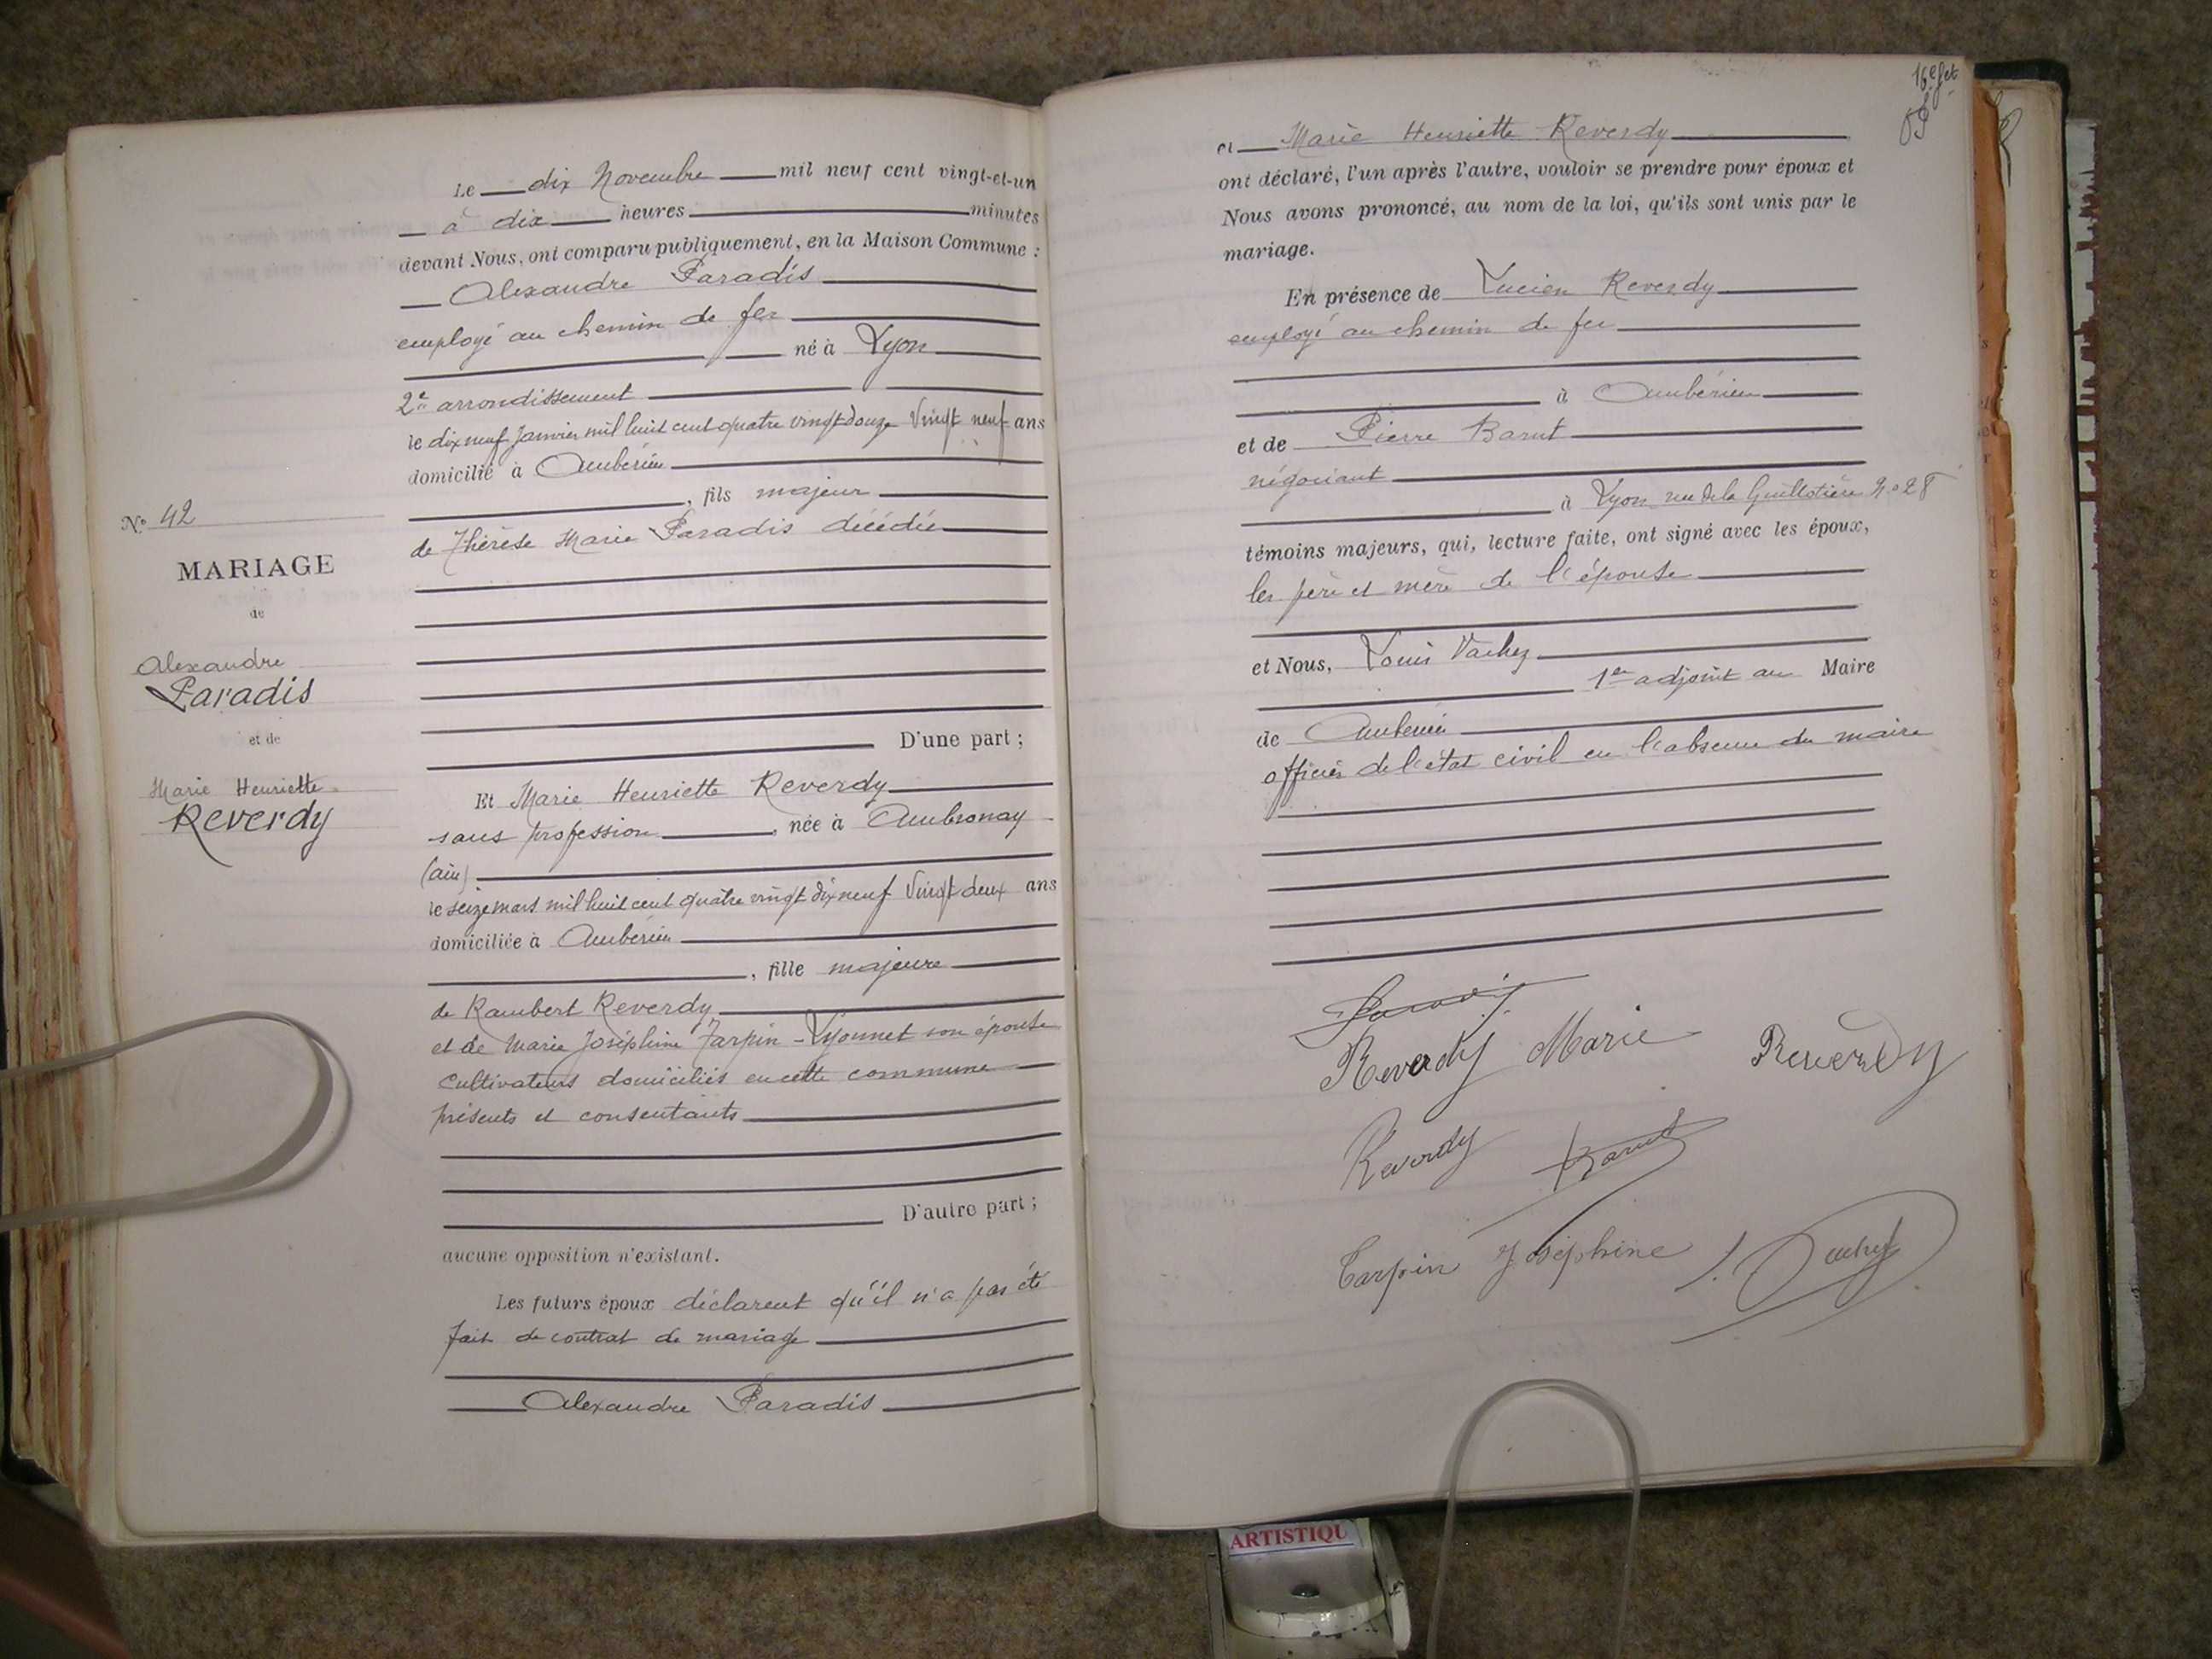 Le dix Novembre mil neuf cent vingt-et-un
à dix heures minutes
devant Nous, ont comparu publiquement, en la Maison Commune :
Alexandre Paradis
employé au chemin de fer
né à Lyon
2e arrondissement
le dix neuf Janvier mil huit cent quatre vingt douze Vingt neuf ans
domicilié à Ambérieu
, fils majeur
de Thérèse Marie Paradis décédée
No 42
MARIAGE
de
Alexandre
Paradis
et de
Marie Henriette
Reverdy
D'une part ;
Et Marie Henriette Reverdy
sans profession, née à Ambronay
(ain)
le seize mars mil huit cent quatre vingt dix neuf Vingt deux ans
domiciliée à Ambérieu
, fille majeure
de Rambert Reverdy
et de Marie Joséphine Tarpin-Lyonnet son épouse
cultivateurs domiciliés en cette commune
présents et consentants
D'autre part ;
aucune opposition n'existant.
Les futurs époux déclarent qu'il n'a pas été
fait de contrat de mariage
Alexandre Paradis
16e fet
et Marie Henriette Reverdy
ont déclaré, l'un après l'autre, vouloir se prendre pour époux et
Nous avons prononcé, au nom de la loi, qu'ils sont unis par le
mariage.
En présence de Lucien Reverdy
employé au chemin de fer
à Ambérieu
et de Pierre Barut
négociant
à Lyon rue de la Guillotière No 28
témoins majeurs, qui, lecture faite, ont signé avec les époux,
les père et mère de l'épouse
et Nous, Louis Vachez
1er adjoint au Maire
de Ambérieu
officier de l'état civil en l'absence du maire
Paradis
Reverdy Marie Reverdy
Reverdy Barut
Tarpin Joséphine L. Vachez
ARTISTIQU